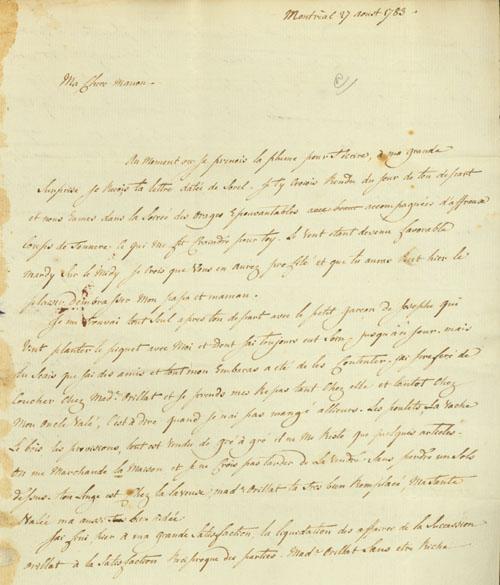 Montréal 27 aoust 1783.
Ma Chere manon.
Au Moment ou je prenois la plume pour t'ecrire, à ma grande
Surprise je reçois ta lettre datée de Sorel. Je t'y Croiois Rendu du jour de ton depart
et nous eumes dans la Soirée des Orages Epouvantables accompagnées d'affreux
Coups de Tonnerre Ce qui me fit Craindre pour toy. Le Vent étant devenu favorable
mardy Sur le Midy je Crois que Vous en aurez profité et que tu auras eut hier le
plaisir d'embrasser Mon papa et maman.
Je me trouvai tout Seul apres ton depart avec le petit garcon de Josephe qui
Vint planter le piquet avec Moi et dont j'ai toujours eut Soin jusqu'à ce jour. mais
tu Scais que j'ai des amis et tout mon Embaras a été de les Contenter. j'ai preferé de
Coucher Chez Mad.e Orillat et je prends mes Repas tant Chez elle et tantot Chez
Mon Oncle Valé, C'est à dire quand je n'ai pas mangé ailleurs. Les poulets La Vache
Le bois les provisions, tout est Vendu de gré à gré il ne me Reste que quelques articles.
On me Marchande la Maison et je ne Crois pas tarder de La Vendre Sans perdre un Sols
dessus. Ton Linge est Chez la laveuse; mad.e Orillat t'a tres bien Remplacé, Ma tante
Valée m'a aussi bien aidée.
J'ai fini hier à ma grande Satisfaction, la liquidation des affaires de la Succession
Orillat à la Satisfaction Reciproque des parties. Mad.e Orillat Sans etre Riche